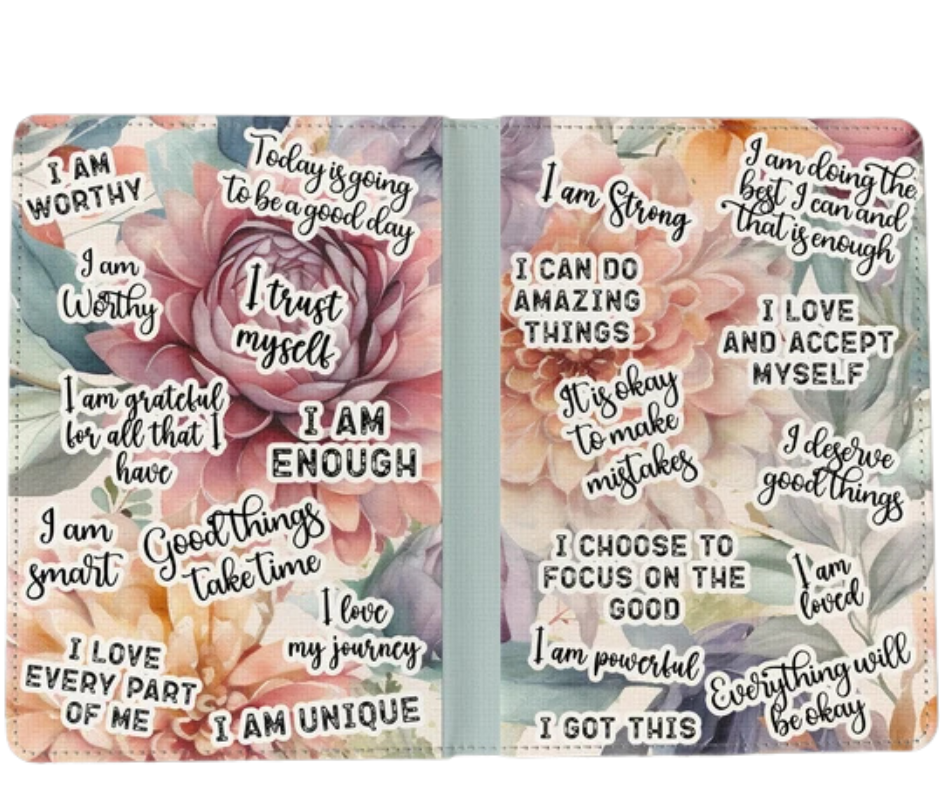 I AM
WORTHY
Today is going
to be a good day
I am
Worthy
I trust
myself
I am grateful
for all that I
have
I AM
ENOUGH
I am
smart
Good things
take time
I love
my journey
I LOVE
EVERY PART
OF ME
I AM UNIQUE
I am Strong
I am doing the
best I can and
that is enough
I CAN DO
AMAZING
THINGS
I LOVE
AND ACCEPT
MYSELF
It is okay
to make
mistakes
I deserve
good things
I CHOOSE TO
FOCUS ON THE
GOOD
I am
loved
I am powerful
Everything will
be okay
I GOT THIS